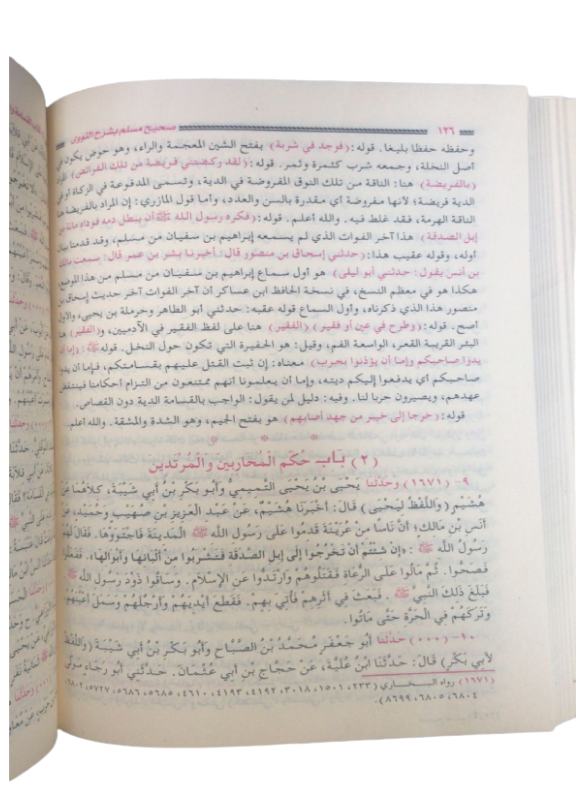 ١٢٦ صحيح مسلم بشرح النووى
وحفظه حفظا بليغا. قوله: (فوجد في شربة) بفتح الشين المعجمة والراء، وهو حوض يكون في
أصل النخلة، وجمعه شرب كثمرة وثمر. قوله: (لقد ركضتني فريضة من تلك الفرائض)
(بالفريضة) هنا: الناقة من تلك النوق المفروضة في الدية، وتسمى المدفوعة في الزكاة أو في
الدية فريضة؛ لأنها مفروضة أي مقدرة بالسن والعدد، وأما قول المازري: إن المراد بالفريضة هنا
الناقة الهرمة، فقد غلط فيه. والله أعلم. قوله: (فكره رسول الله ﷺ أن يبطل دمه فوداه مائة من
إبل الصدقة) هذا آخر الفوات الذي لم يسمعه إبراهيم بن سفيان من مسلم، وقد قدمنا بيان
أوله، وقوله عقيب هذا: (حدثني إسحاق بن منصور قال: أخبرنا بشر بن عمر قال: سمعت مالك
بن أنس يقول: حدثني أبو ليلى) هو أول سماع إبراهيم بن سفيان من مسلم من هذا الموضع،
هكذا هو في معظم النسخ، في نسخة الحافظ ابن عساكر أن آخر الفوات آخر حديث إسحاق بن
منصور هذا الذي ذكرناه، وأول السماع قوله عقبه: حدثني أبو الطاهر وحرملة بن يحيى، والأول
أصح. قوله: (وطرح في عين أو فقير) (الفقير) هنا على لفظ الفقير في الآدميين، و(الفقير) هنا
البئر القريبة القعر، الواسعة الفم، وقيل: هو الحفيرة التي تكون حول النخل. قوله ﷺ: (إما أن
يدوا صاحبكم وإما أن يؤذنوا بحرب) معناه: إن ثبت القتل عليهم بقسامتكم، فإما أن يدوا
صاحبكم أي يدفعوا إليكم ديته، وإما أن يعلمونا أنهم ممتنعون من التزام أحكامنا فينتقض
عهدهم، ويصيرون حربا لنا. وفيه: دليل لمن يقول: الواجب بالقسامة الدية دون القصاص.
قوله: (خرجا إلى خيبر من جهد أصابهم) هو بفتح الجيم، وهو الشدة والمشقة. والله أعلم.
* * *
(٢) باب حُكْمِ الْمُحَارِبِينَ وَالْمُرْتَدِّينَ
٩- (١٦٧١) وحدثنا يَحْيَى بْنُ يَحْيَى التَّمِيمِيُّ وَأَبُو بَكْرِ بْنُ أَبِي شَيْبَةَ، كِلَاهُمَا عَنْ
هُشَيْمٍ (وَاللَّفْظُ لِيَحْيَى) قَالَ: أَخْبَرَنَا هُشَيْمٌ، عَنْ عَبْدِ الْعَزِيزِ بْنِ صُهَيْبٍ وَحُمَيْدٍ، عَنْ
أَنَسِ بْنِ مَالِكٍ؛ أَنَّ نَاسًا مِنْ عُرَيْنَةَ قَدِمُوا عَلَى رَسُولِ اللَّهِ ﷺ الْمَدِينَةَ فَاجْتَوَوْهَا. فَقَالَ لَهُمْ
رَسُولُ اللَّهِ ﷺ: «إِنْ شِئْتُمْ أَنْ تَخْرُجُوا إِلَى إِبِلِ الصَّدَقَةِ فَتَشْرَبُوا مِنْ أَلْبَانِهَا وَأَبْوَالِهَا». فَفَعَلُوا
فَصَحُّوا. ثُمَّ مَالُوا عَلَى الرُّعَاةِ فَقَتَلُوهُمْ وَارْتَدُّوا عَنِ الْإِسْلَامِ. وَسَاقُوا ذَوْدَ رَسُولِ اللَّهِ ﷺ
فَبَلَغَ ذَلِكَ النَّبِيَّ ﷺ. فَبَعَثَ فِي أَثَرِهِمْ فَأُتِيَ بِهِمْ. فَقَطَعَ أَيْدِيَهُمْ وَأَرْجُلَهُمْ وَسَمَلَ أَعْيُنَهُمْ
وَتَرَكَهُمْ فِي الْحَرَّةِ حَتَّى مَاتُوا.
١٠- (٠٠٠) حدثنا أَبُو جَعْفَرٍ مُحَمَّدُ بْنُ الصَّبَّاحِ وَأَبُو بَكْرِ بْنُ أَبِي شَيْبَةَ (وَاللَّفْظُ
لِأَبِي بَكْرٍ) قَالَ: حَدَّثَنَا ابْنُ عُلَيَّةَ، عَنْ حَجَّاجِ بْنِ أَبِي عُثْمَانَ. حَدَّثَنِي أَبُو رَجَاءٍ مَوْلَى
(١٦٧١) رواه البخاري (٢٣٣، ١٥٠١، ٣٠١٨، ٤١٩٢، ٤١٩٣، ٤٦١٠، ٥٦٨٥، ٥٦٨٦، ٥٧٢٧، ٦٨٠٢،
٦٨٠٤، ٦٨٠٥، ٦٨٩٩).